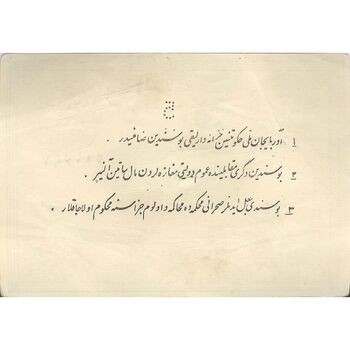 ۱ آذربایجان ملی حکومتنین خزانه دارلیقی بو سندین ضامنیدیر.
۲ بو سندین دگری مقابلینده عموم دولتی مغازه لردن مال ساتین آلنیر.
۳ بو سندی جعل ایدنلر صحرائی محکمه ده محاکمه و اولوم جزاسنه محکوم اولاجاقلار.